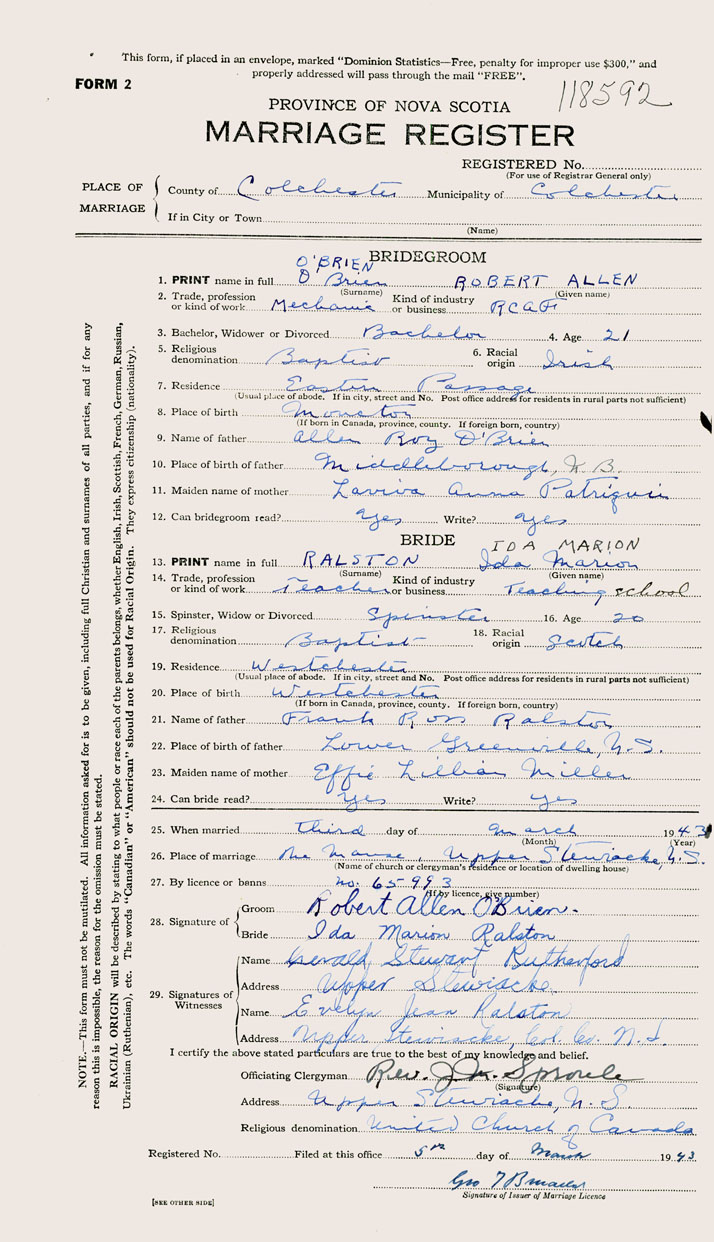 This form, if placed in an envelope, marked "Dominion Statistics—Free, penalty for improper use $300," and
properly addressed will pass through the mail "FREE".
FORM 2
118592
PROVINCE OF NOVA SCOTIA
MARRIAGE REGISTER
REGISTERED No.
(For use of Registrar General only)
PLACE OF MARRIAGE
County of Colchester Municipality of Colchester
If in City or Town
(Name)
BRIDEGROOM
O'BRIEN
1. PRINT name in full O'Brien ROBERT ALLEN
(Surname) (Given name)
2. Trade, profession or kind of work Mechanic Kind of industry or business RCAF
3. Bachelor, Widower or Divorced Bachelor 4. Age 21
5. Religious denomination Baptist 6. Racial origin Irish
7. Residence Eastern Passage
(Usual place of abode. If in city, street and No. Post office address for residents in rural parts not sufficient)
8. Place of birth Moncton
(If born in Canada, province, county. If foreign born, country)
9. Name of father Allen Roy O'Brien
10. Place of birth of father Middleborough, N.B.
11. Maiden name of mother Laviva Anna Patriquin
12. Can bridegroom read? Yes Write? Yes
BRIDE
IDA MARION
13. PRINT name in full RALSTON Ida Marion
(Surname) (Given name)
14. Trade, profession or kind of work Teacher Kind of industry or business Teaching school
15. Spinster, Widow or Divorced Spinster 16. Age 20
17. Religious denomination Baptist 18. Racial origin Scotch
19. Residence Westchester
(Usual place of abode. If in city, street and No. Post office address for residents in rural parts not sufficient)
20. Place of birth Westchester
(If born in Canada, province, county. If foreign born, country)
21. Name of father Frank Ross Ralston
22. Place of birth of father Lower Greenville, N.S.
23. Maiden name of mother Effie Lillian Miller
24. Can bride read? Yes Write? Yes
25. When married third day of March 1943
(Month) (Year)
26. Place of marriage The Manse, Upper Stewiacke, N.S.
(Name of church or clergyman's residence or location of dwelling house)
27. By licence or banns no. 65993
(If by licence, give number)
28. Signature of
Groom Robert Allen O'Brien.
Bride Ida Marion Ralston
29. Signatures of Witnesses
Name Gerald Stewart Rutherford
Address Upper Stewiacke.
Name Evelyn Jean Ralston
Address Upper Stewiacke, Col. Co. N.S.
I certify the above stated particulars are true to the best of my knowledge and belief.
Officiating Clergyman Rev. J. Sproule
(Signature)
Address Upper Stewiacke, N.S.
Religious denomination United Church of Canada
Registered No. Filed at this office 5th day of March 1943
Geo
Signature of Issuer of Marriage Licence
[SEE OTHER SIDE]
NOTE.—This form must not be mutilated. All information asked for is to be given, including full Christian and surnames of all parties, and if for any
reason this is impossible, the reason for the omission must be stated.
RACIAL ORIGIN will be described by stating to what people or race each of the parents belongs, whether English, Irish, Scottish, French, German, Russian,
Ukrainian (Ruthenian), etc. The words "Canadian" or "American" should not be used for Racial Origin. They express citizenship (nationality).